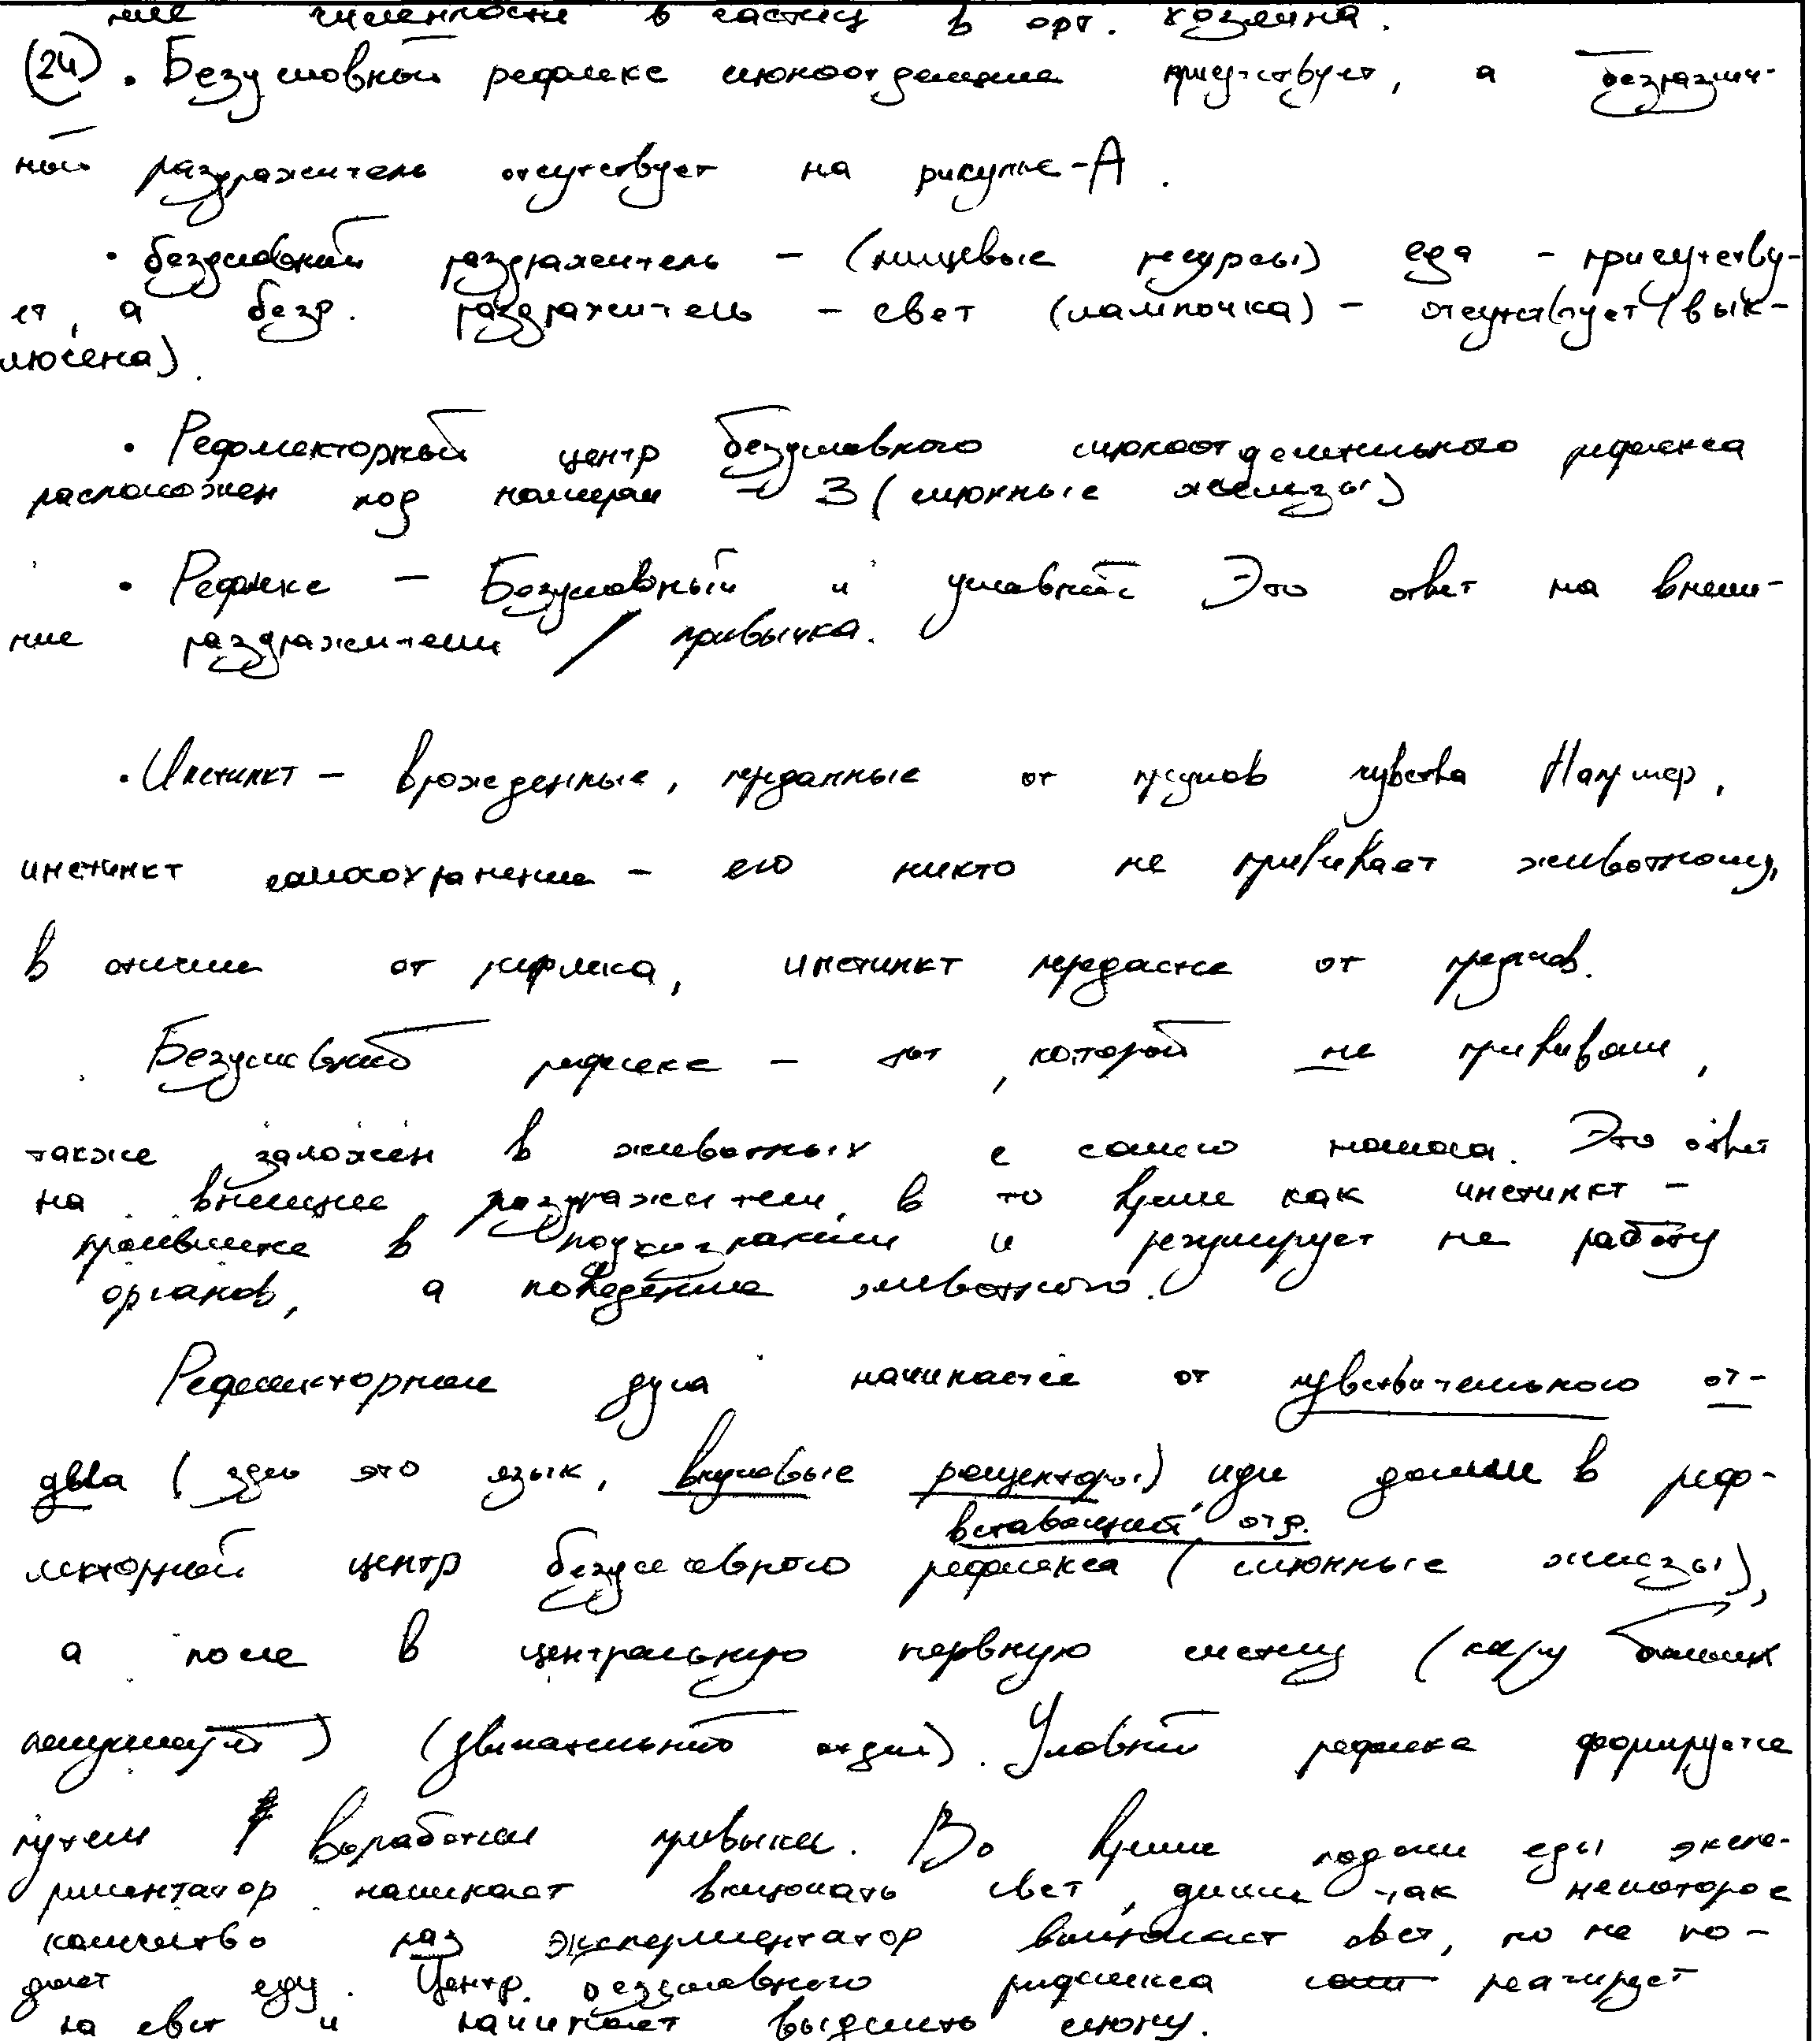 ние численности в частиц в орг. хозяина.
(24) . Безусловный рефлекс слюноотделения присутствует, а безразлич-
ный раздражитель отсутствует на рисунке - А.
· безусловный раздражитель – (пищевые ресурсы) еда – присутству-
ет, а безр. раздражитель – свет (лампочка) – отсутствует (вык-
лючена).
· Рефлекторный центр безусловного слюноотделительного рефлекса
расположен под номерам – 3 (слюнные железы)
· Рефлекс – Безусловный и условный Это ответ на внеш-
ние раздражители / привычка.
· Инстинкт – врожденные, преданные от предков чувства Например,
инстинкт самосохранения – его никто не прививает животному,
в отличии от рефлекса, инстинкт передается от предков.
Безусловный рефлекс – тот, который не прививали,
также заложен в животных с самого начала. Это ответ
на внешние раздражители, в то время как инстинкт –
проявляется в и регулирует не работу
органов, а поведение животного.
Рефлекторная дуга начинается от чувствительного от-
дела (здесь это язык, вкусовые рецепторы) иди далее в реф-
вставочный отд.
лекторный центр безусловного рефлекса (слюнные железы),
а после в центральную нервную систему (кору больших
полушарий) (двигательный отдел). Условный рефлекс формируется
путем выработки привычки. Во время подачи еды экспе-
риментатор начинает включать свет, делая так некоторое
количество раз экспериментатор включает свет, но не по-
дает еду. Центр безусловного рефлекса реагирует
на свет и начинает выделять слюну.